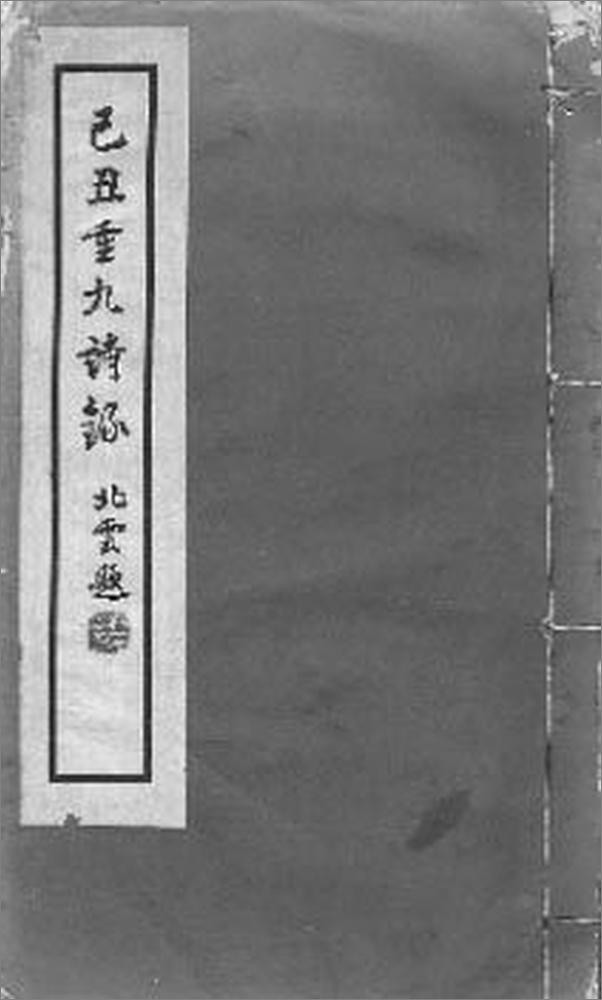 己丑重九詩錄
北雲題